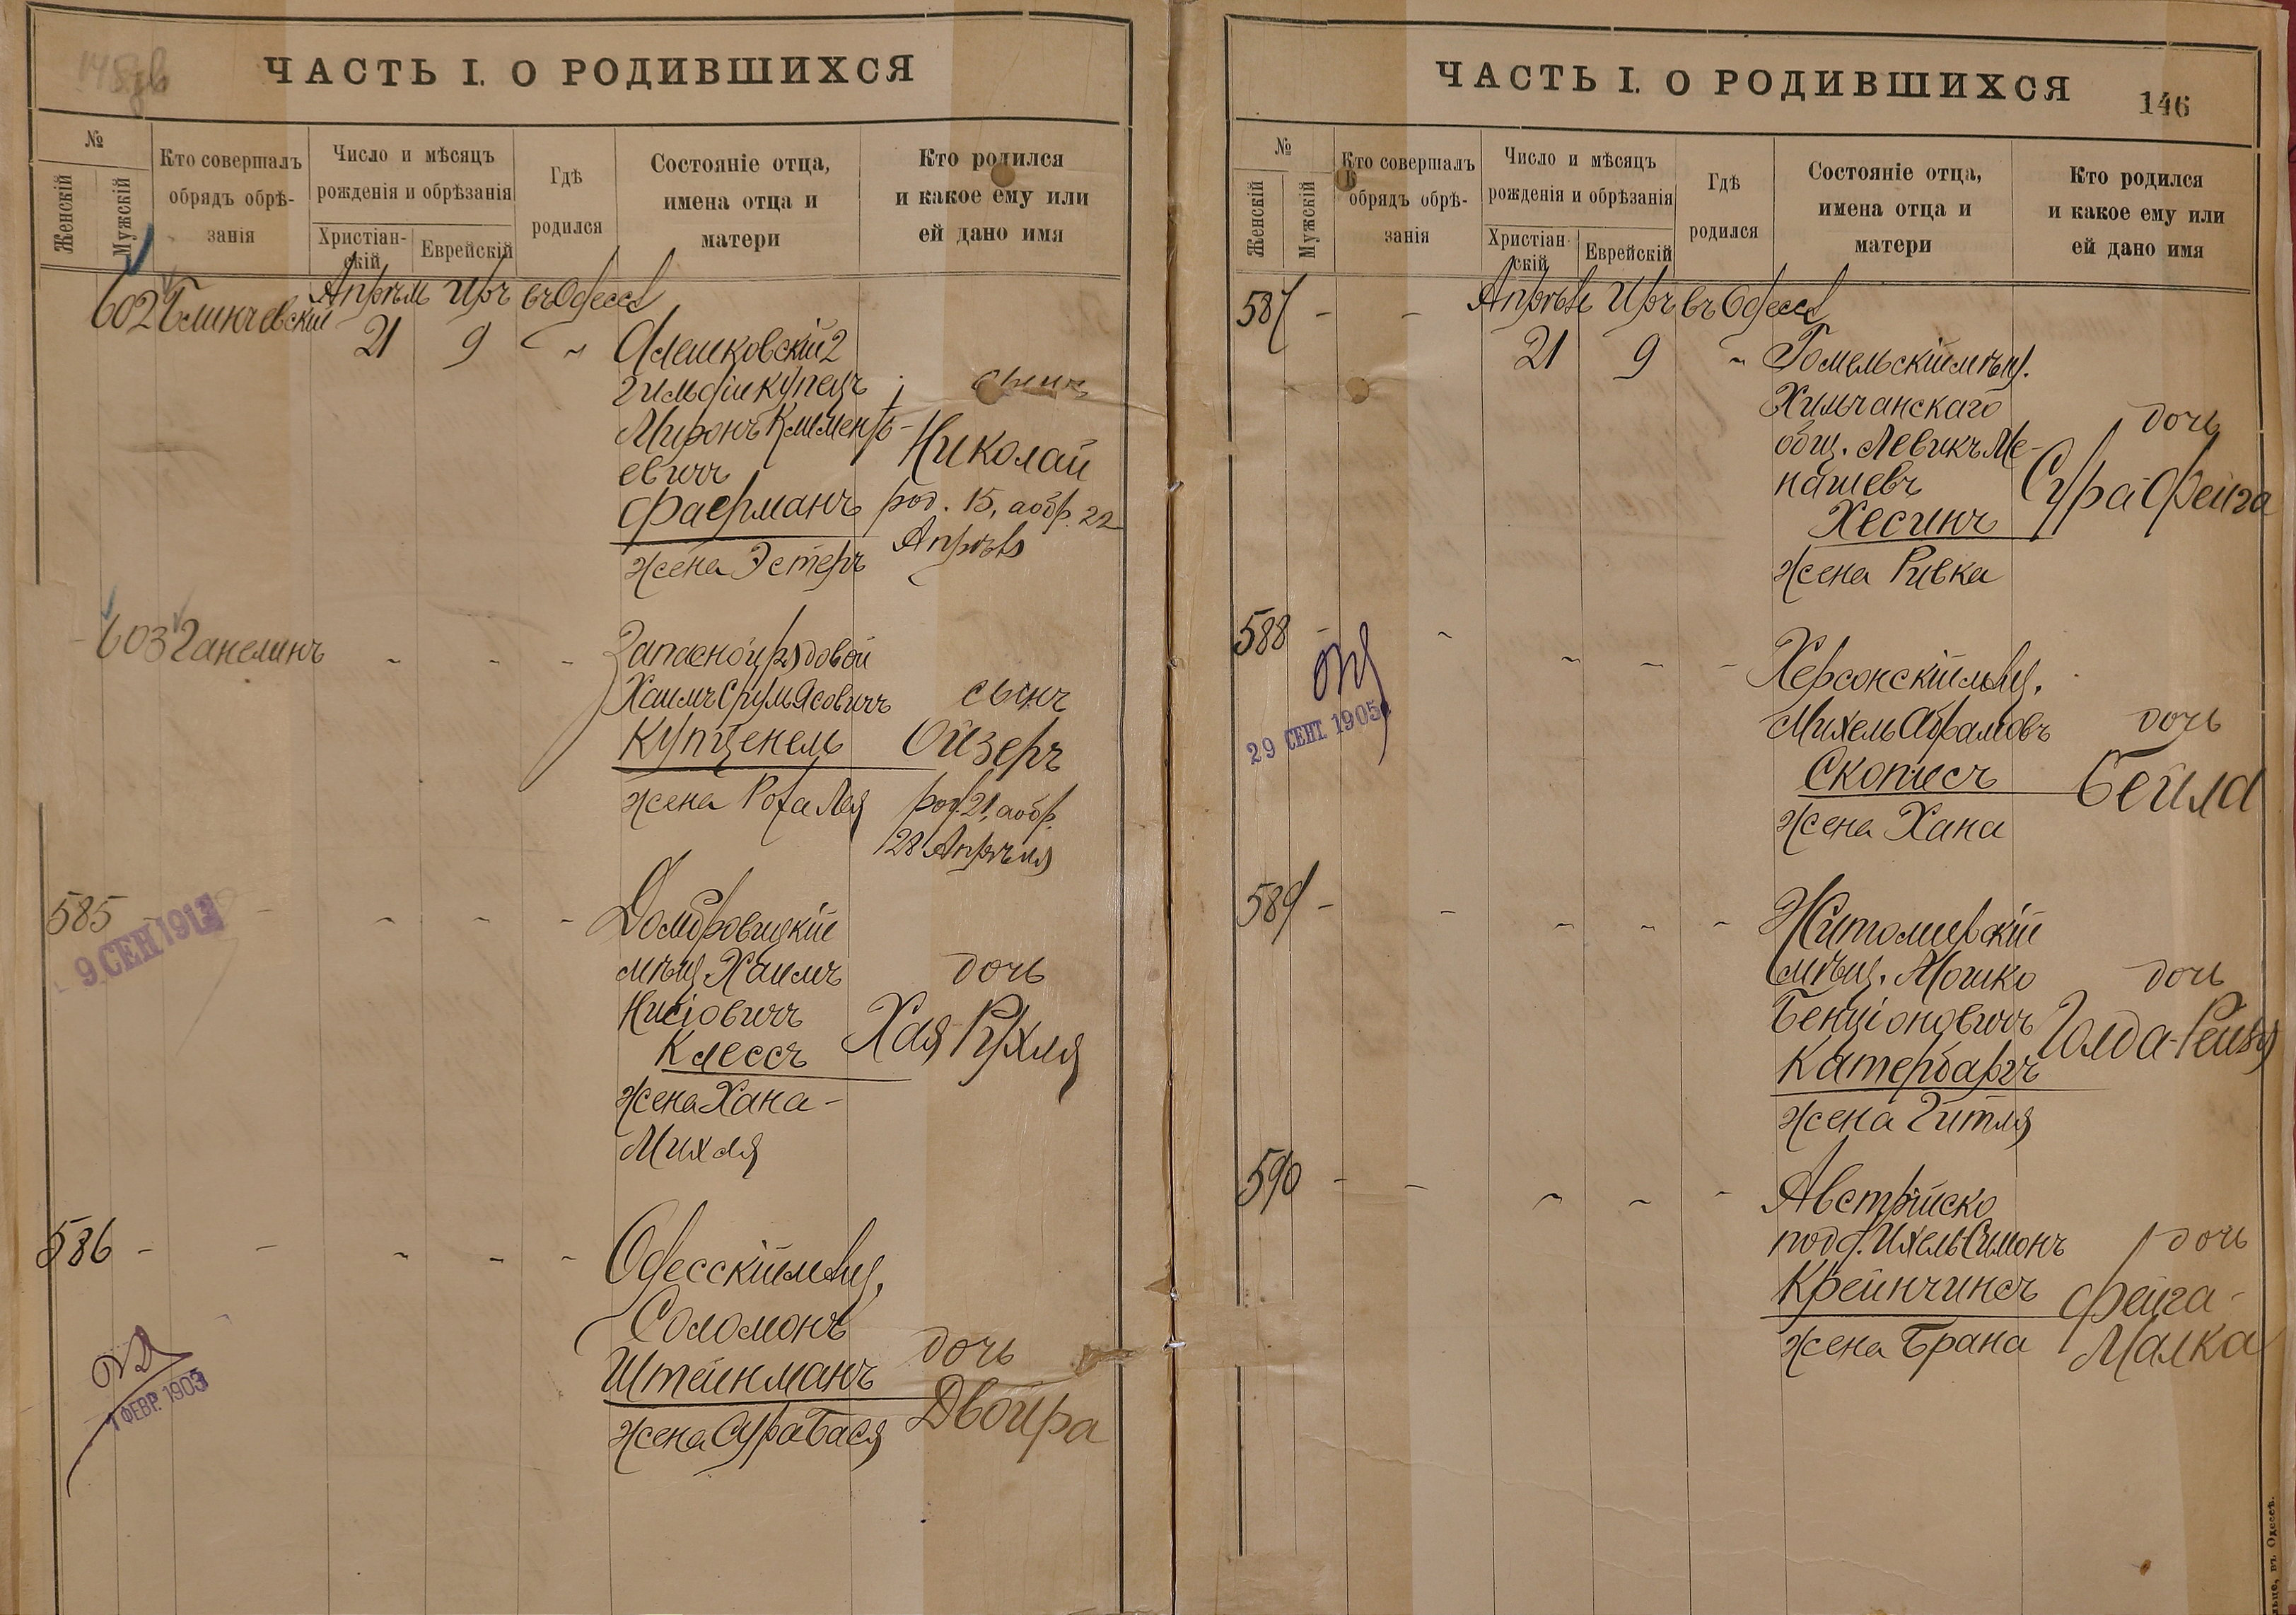 ЧАСТЬ I. О РОДИВШИХСЯ
№
Женскій
Мужскій
Кто совершалъ
обрядъ обрѣ-
занія
Число и мѣсяцъ
рожденія и обрѣзанія
Христіан-
скій
Еврейскій
Гдѣ
родился
Состояніе отца,
имена отца и
матери
Кто родился
и какое ему или
ей дано имя
602 Апрѣль Иръ въ Одессѣ
21 9 Алешковскій 2
гильдіи купецъ сынъ
Миронъ Климентъ-
евичъ Николай
Фаерманъ род. 15, а обр. 22
жена Эстеръ Апрѣля
603 Ганелинъ Запасной рядовой
Хаимъ Сруль Ясовичъ сынъ
Купценель Ойзеръ
жена Роза Лея род. 21, а обр.
28 Апрѣля
585 Домбровицкій
9 СЕН 1912
мѣщ. Хаимъ дочь
Нисіовичъ
Клессъ Хая Рухля
жена Хана-
Михля
586 Одесскій мѣщ.
Соломонъ
Штейнманъ дочь
1 ФЕВР. 1903
жена Сура Бася Двойра
ЧАСТЬ I. О РОДИВШИХСЯ
146
№
Женскій
Мужскій
Кто совершалъ
обрядъ обрѣ-
занія
Число и мѣсяцъ
рожденія и обрѣзанія
Христіан-
скій
Еврейскій
Гдѣ
родился
Состояніе отца,
имена отца и
матери
Кто родился
и какое ему или
ей дано имя
587 - - Апрѣль Иръ въ Одессѣ
21 9 Гомельскій мѣщ.
Хильчанскаго
общ. Левикъ Ме- дочь
нашевъ Сура-Фейга
Хесинъ
жена Ривка
588 Херсонскій мѣщ.
29 СЕНТ. 1905
Михель Абрамовъ дочь
Скописъ Бейла
жена Хана
589 - Житомирскій
мѣщ. Мошко дочь
Бенціоновичъ Голда-Рейзя
Катербаргъ
жена Гитля
590 - Австрійско
подд. Ихель Симонъ дочь
Крейнчинсъ Фейга-
жена Брана Малка